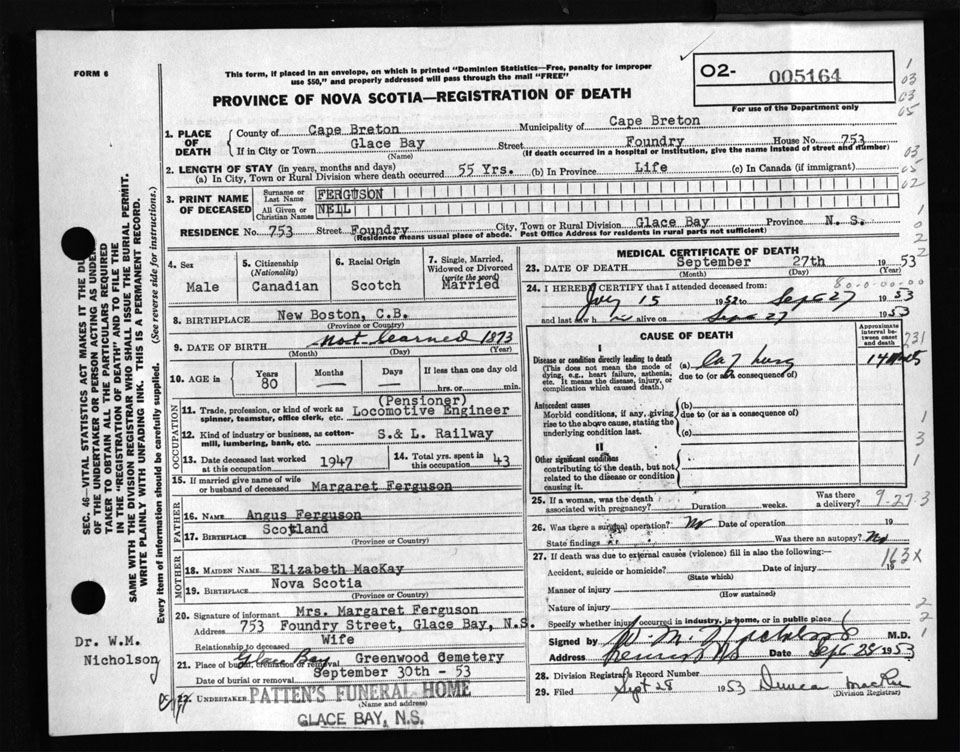 FORM 6
This form, if placed in an envelope, on which is printed "Dominion Statistics—Free, penalty for improper
use $50," and properly addressed will pass through the mail "FREE"
PROVINCE OF NOVA SCOTIA—REGISTRATION OF DEATH
O2- 005164
For use of the Department only
1. PLACE OF DEATH
County of Cape Breton Municipality of Cape Breton
If in City or Town Glace Bay Street Foundry House No. 753
(Name) (If death occurred in a hospital or institution, give the name instead of street and number)
2. LENGTH OF STAY (in years, months and days)
(a) In City, Town or Rural Division where death occurred 55 Yrs. (b) In Province Life (c) In Canada (if immigrant)
3. PRINT NAME OF DECEASED
Surname or Last Name FERGUSON
All Given or Christian Names NEIL
RESIDENCE No. 753 Street Foundry City, Town or Rural Division Glace Bay Province N. S.
(Residence means usual place of abode. Post Office Address for residents in rural parts not sufficient)
4. Sex
Male
5. Citizenship
(Nationality)
Canadian
6. Racial Origin
Scotch
7. Single, Married, Widowed or Divorced
(write the word)
Married
8. BIRTHPLACE New Boston, C.B.
(Province or Country)
9. DATE OF BIRTH not learned 1873
(Month) (Day) (Year)
10. AGE in Years 80 Months — Days — If less than one day old
hrs. or min.
OCCUPATION
11. Trade, profession, or kind of work as (Pensioner)
spinner, teamster, office clerk, etc. Locomotive Engineer
12. Kind of industry or business, as cotton-
mill, lumbering, bank, etc. S.& L. Railway
13. Date deceased last worked
at this occupation 1947
14. Total yrs. spent in
this occupation 43
15. If married give name of wife
or husband of deceased Margaret Ferguson
FATHER
16. NAME Angus Ferguson
17. BIRTHPLACE Scotland
(Province or Country)
MOTHER
18. MAIDEN NAME Elizabeth MacKay
19. BIRTHPLACE Nova Scotia
(Province or Country)
20. Signature of informant Mrs. Margaret Ferguson
Address 753 Foundry Street, Glace Bay, N.S.
Relationship to deceased Wife
21. Place of burial, cremation or removal Glace Bay Greenwood Cemetery
Date of burial or removal September 30th - 53
22. UNDERTAKER PATTEN'S FUNERAL HOME
(Name and address)
GLACE BAY, N.S.
MEDICAL CERTIFICATE OF DEATH
23. DATE OF DEATH September 27th 1953
(Month) (Day) (Year)
24. I HEREBY CERTIFY that I attended deceased from:
July 15 1952 to Sept 27 1953
and last saw him alive on Sept 27 1953
CAUSE OF DEATH
Approximate interval between onset and death
I
Disease or condition directly leading to death
(This does not mean the mode of
dying, e.g., heart failure, asthenia,
etc. It means the disease, injury, or
complication which caused death.)
(a) Ca of lung 14 Months
due to (or as a consequence of)
Antecedent causes
Morbid conditions, if any, giving
rise to the above cause, stating the
underlying condition last.
(b)
due to (or as a consequence of)
(c)
II
Other significant conditions
contributing to the death, but not
related to the disease or condition
causing it.
25. If a woman, was the death
associated with pregnancy? Duration weeks. Was there a delivery?
9-27 3
26. Was there a surgical operation? No Date of operation 19
State findings Was there an autopsy? No
27. If death was due to external causes (violence) fill in also the following:—
163X
Accident, suicide or homicide? Date of injury 19
(State which)
Manner of injury
(How sustained)
Nature of injury
Specify whether injury occurred in industry, in home, or in public place
Signed by W. M. Nicholson M.D.
Address N.S. Date Sept 28 1953
28. Division Registrar's Record Number
29. Filed Sept 28 1953 Duncan
(Division Registrar)
SEC. 46—VITAL STATISTICS ACT MAKES IT THE DU
OF THE UNDERTAKER OR PERSON ACTING AS UNDER
TAKER TO OBTAIN ALL THE PARTICULARS REQUIRED
IN THE "REGISTRATION OF DEATH" AND TO FILE THE
SAME WITH THE DIVISION REGISTRAR WHO SHALL ISSUE THE BURIAL PERMIT.
WRITE PLAINLY WITH UNFADING INK. THIS IS A PERMANENT RECORD.
Every item of information should be carefully supplied. (See reverse side for instructions.)
Dr. W.M.
Nicholson